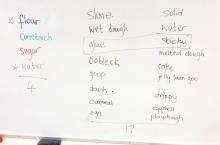 * flour
Cornstarch
Sugar
* water
4
Slime
wet dough
glue
oobleck
goop
dough
oatmeal
egg
solid
water
sticky
melted dough
cake
jelly bean goo
drippy
eggshell
playdough
17